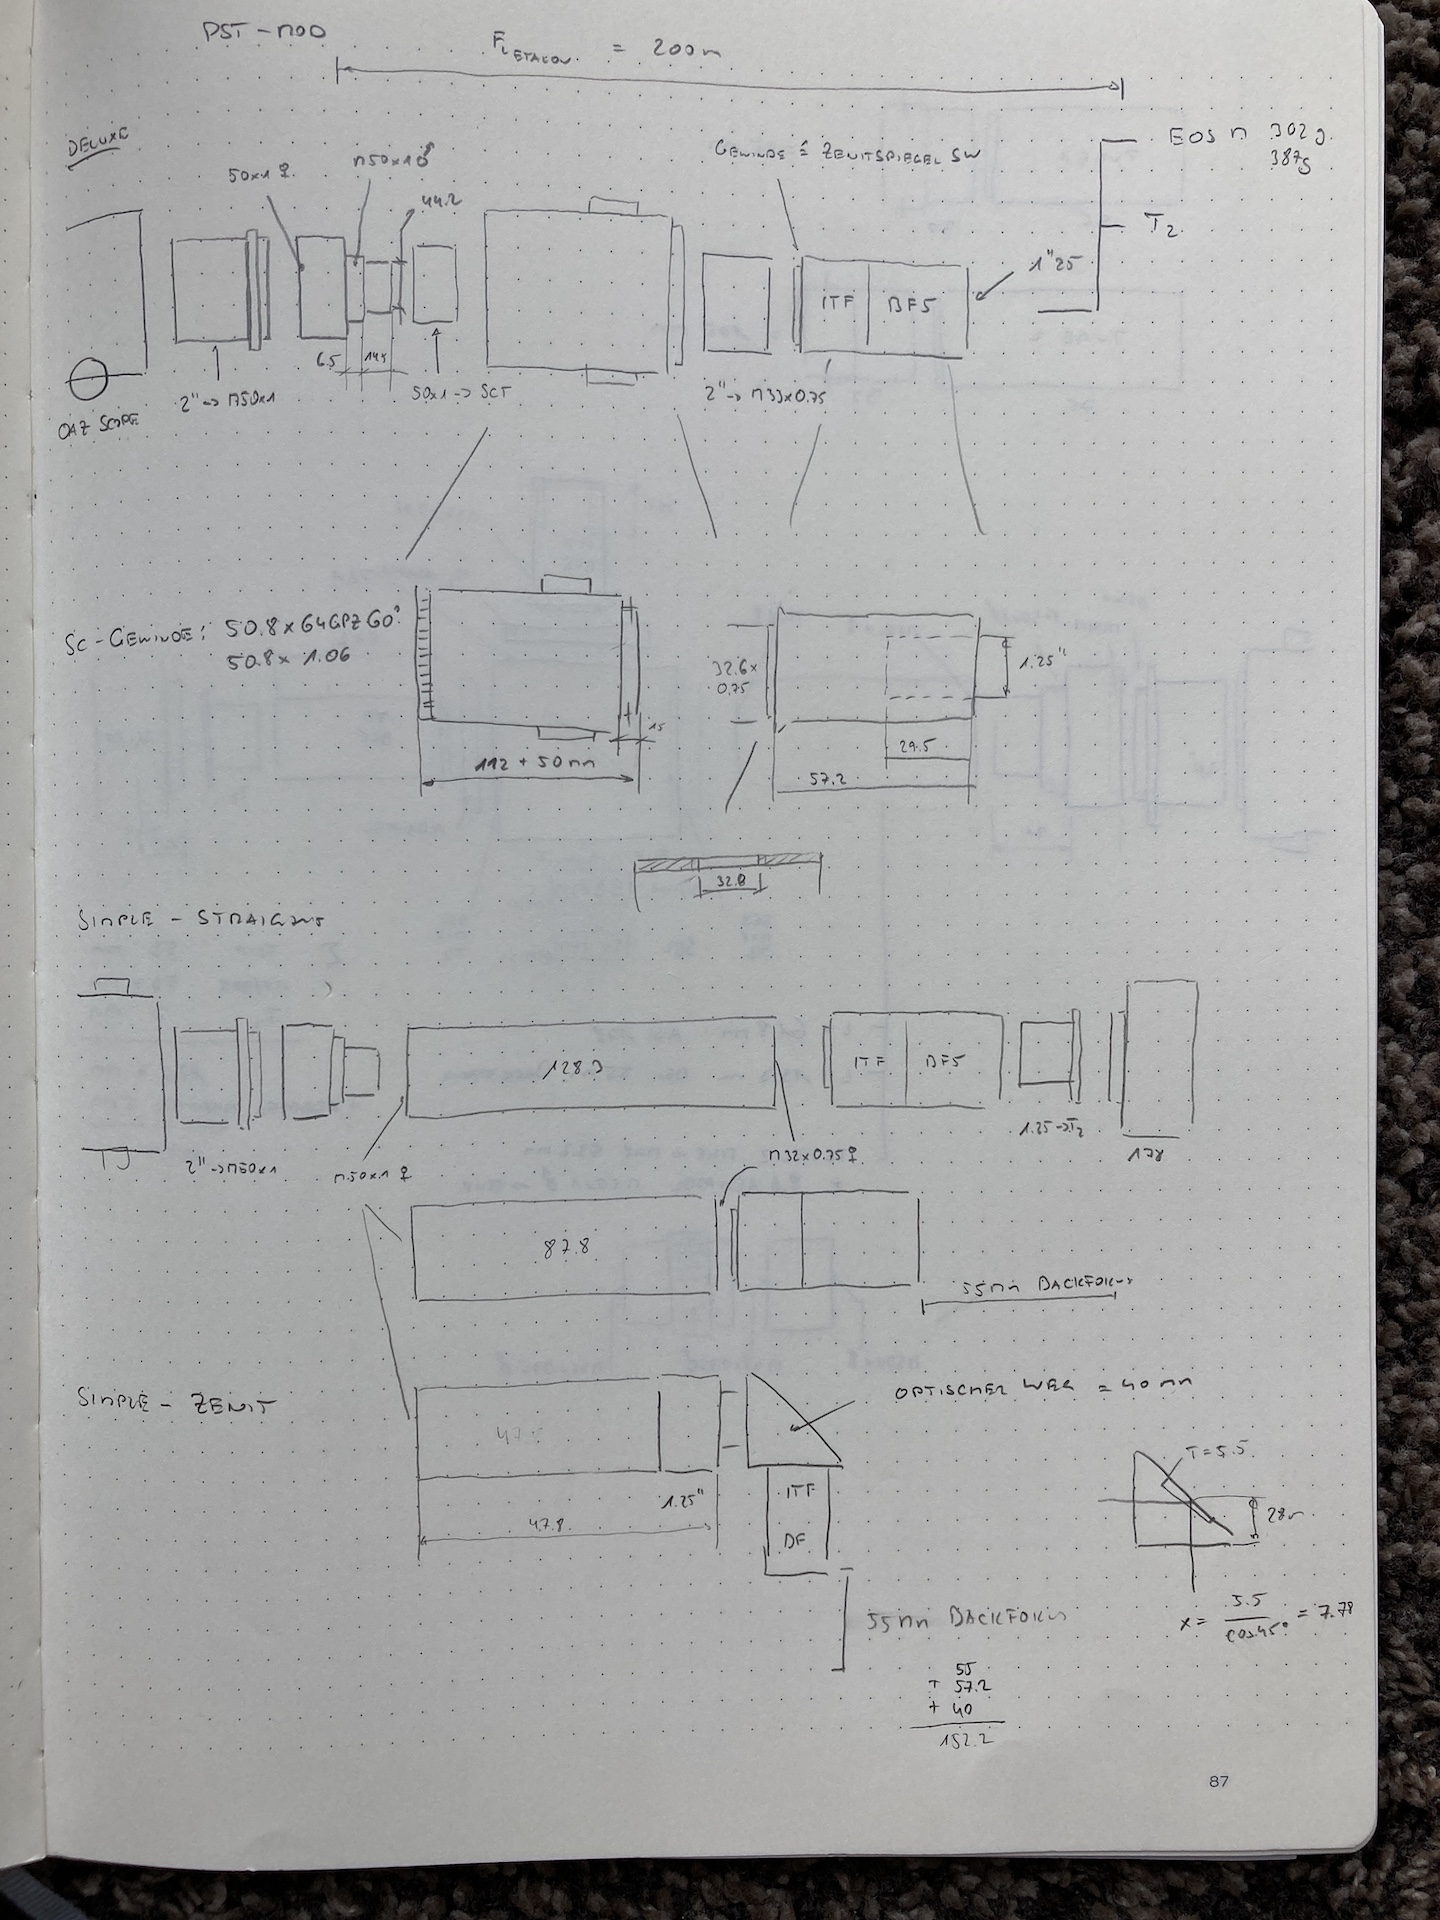 PST-MOD
FL ETALON = 200m
DELUXE
EOS M 302g
387g
GEWINDE = ZENITSPIEGEL SW
50x1 ♀
M50x1 ♂
44.2
T2
1"25
ITF
BF5
6.5
14.5
2" -> M50x1
50x1 -> SCT
2" -> M33x0.75
OAZ SCOPE
SC-GEWINDE: 50.8 x G4GPZ 60°
50.8 x 1.06
32.6 x
0.75
1.25"
15
29.5
112 + 50mm
57.2
32.8
SIMPLE - STRAIGHT
128.3
ITF
BF5
1.25->T2
178
2" -> M50x1
M50x1 ♀
M32x0.75 ♀
87.8
55mm BACKFOKUS
SIMPLE - ZENIT
OPTISCHER WEG = 40mm
T=5.5
1.25"
ITF
BF
47.8
28m
55mm BACKFOKUS
x = 5.5 / cos45° = 7.78
55
+ 57.2
+ 40
152.2
87